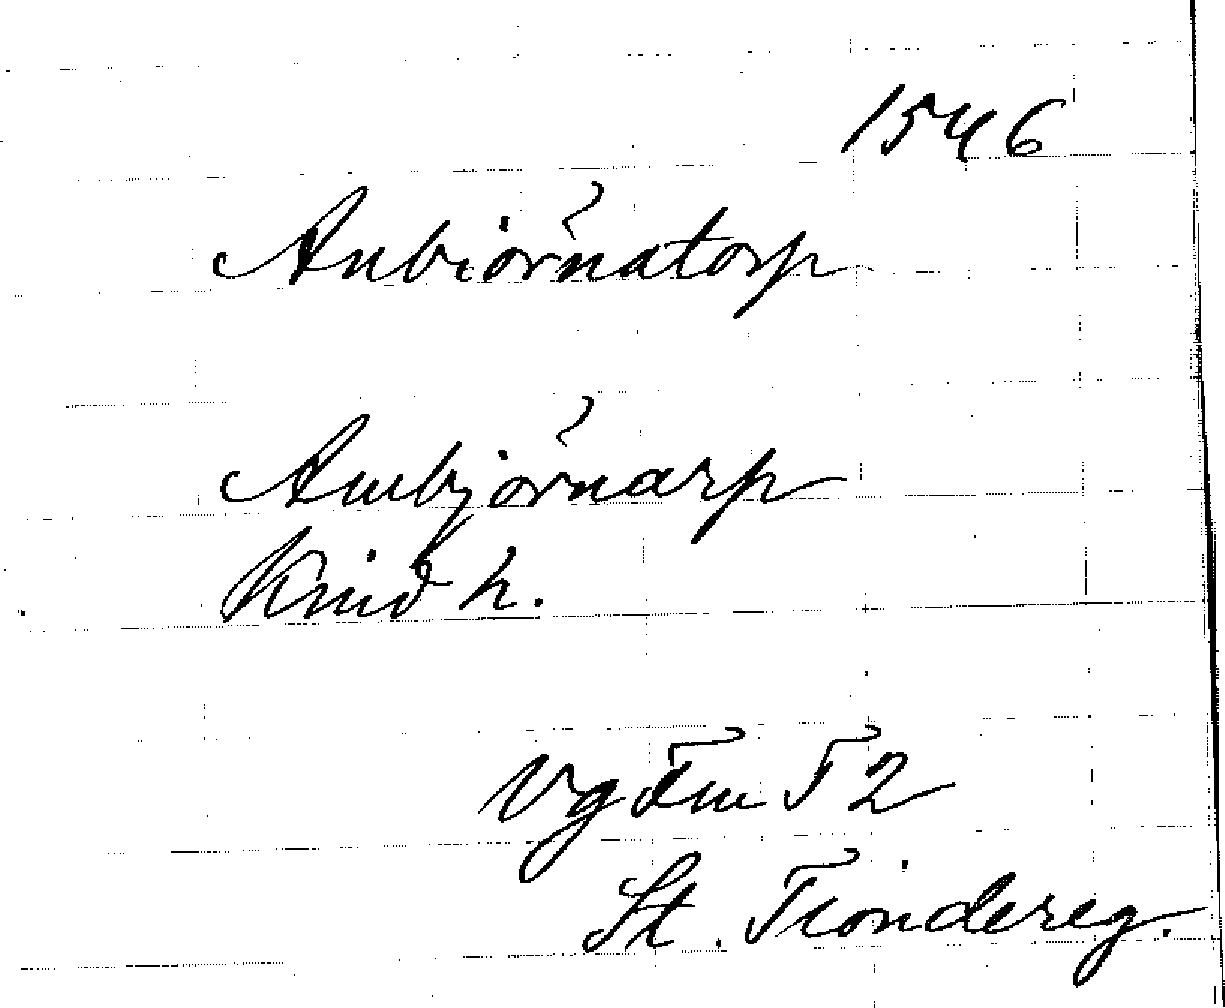 1546
Anbiörnatorp
Ambjörnarp
Kind h.
Vg T 2
St. Tiondereg.